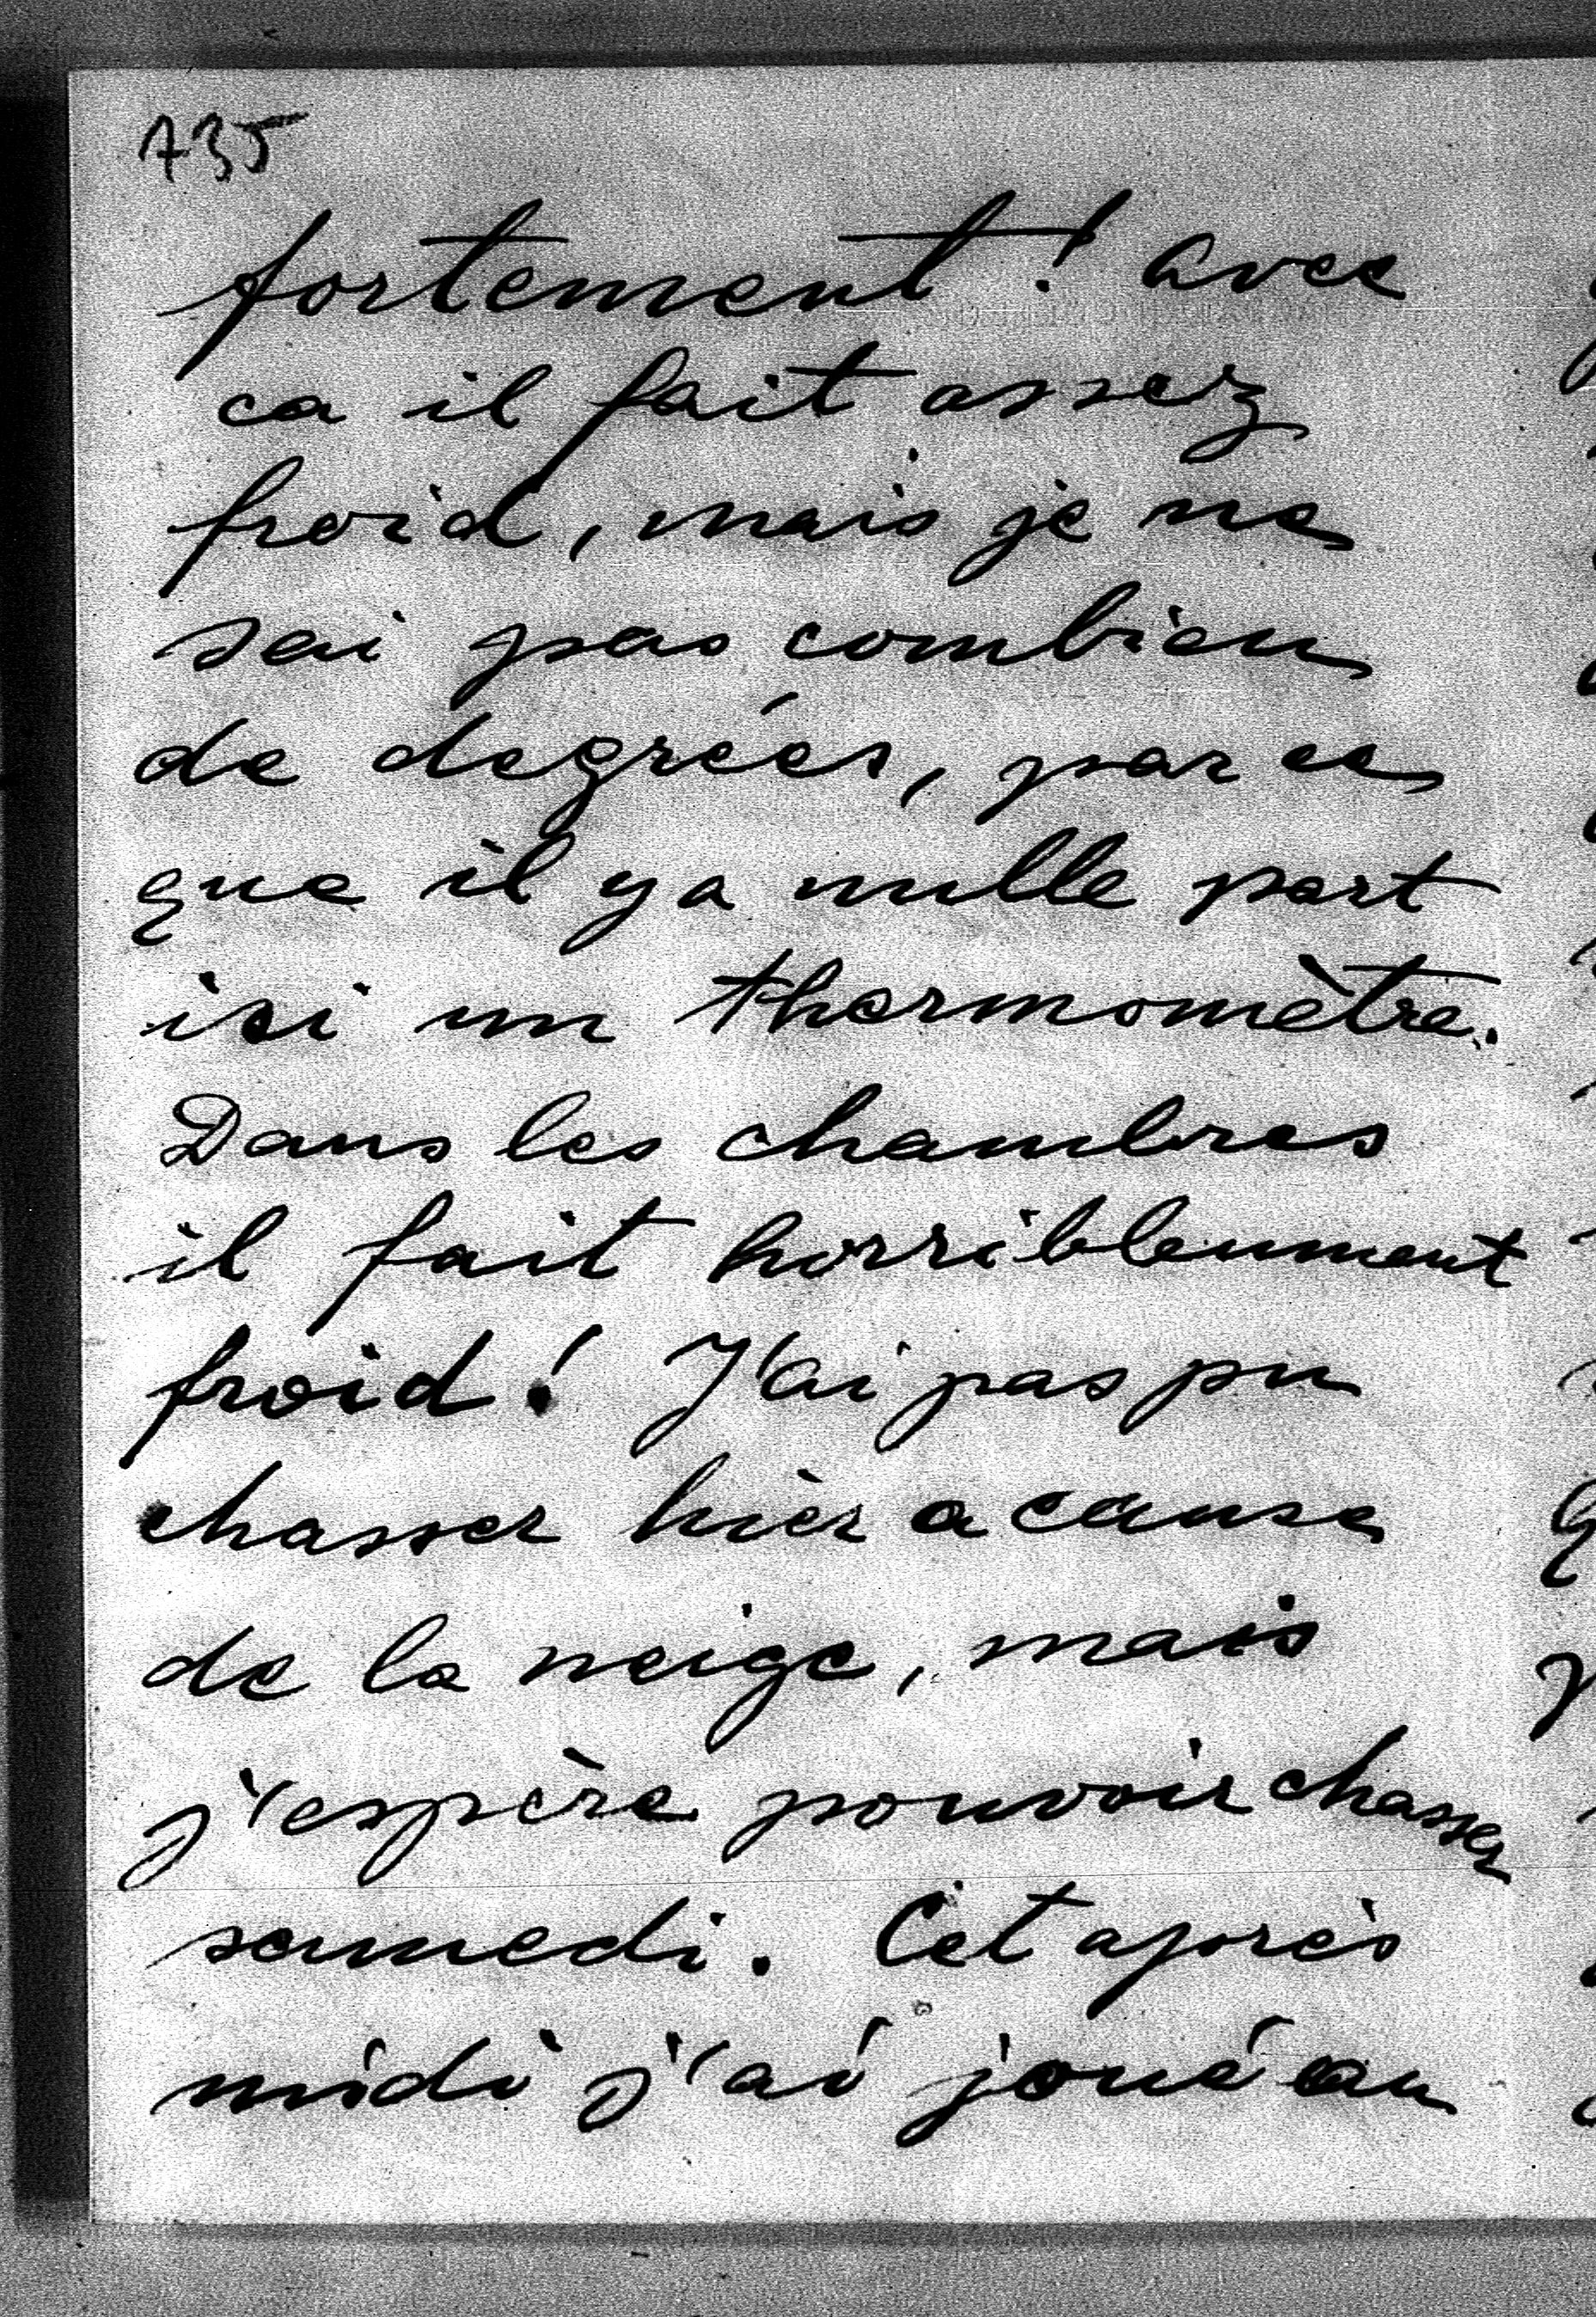 735
fortement! Avec
ca il fait assez
froid, mais je ne
sai pas combien
de degrées, par ce
que il y a nulle part
ici un thermomètre.
Dans les chambres
il fait horriblemment
froid! J'ai pas pu
chasser hièr a cause
de la neige, mais
j'espère pouvoir chasser
samedi. Cet après
midi j'ai joué au